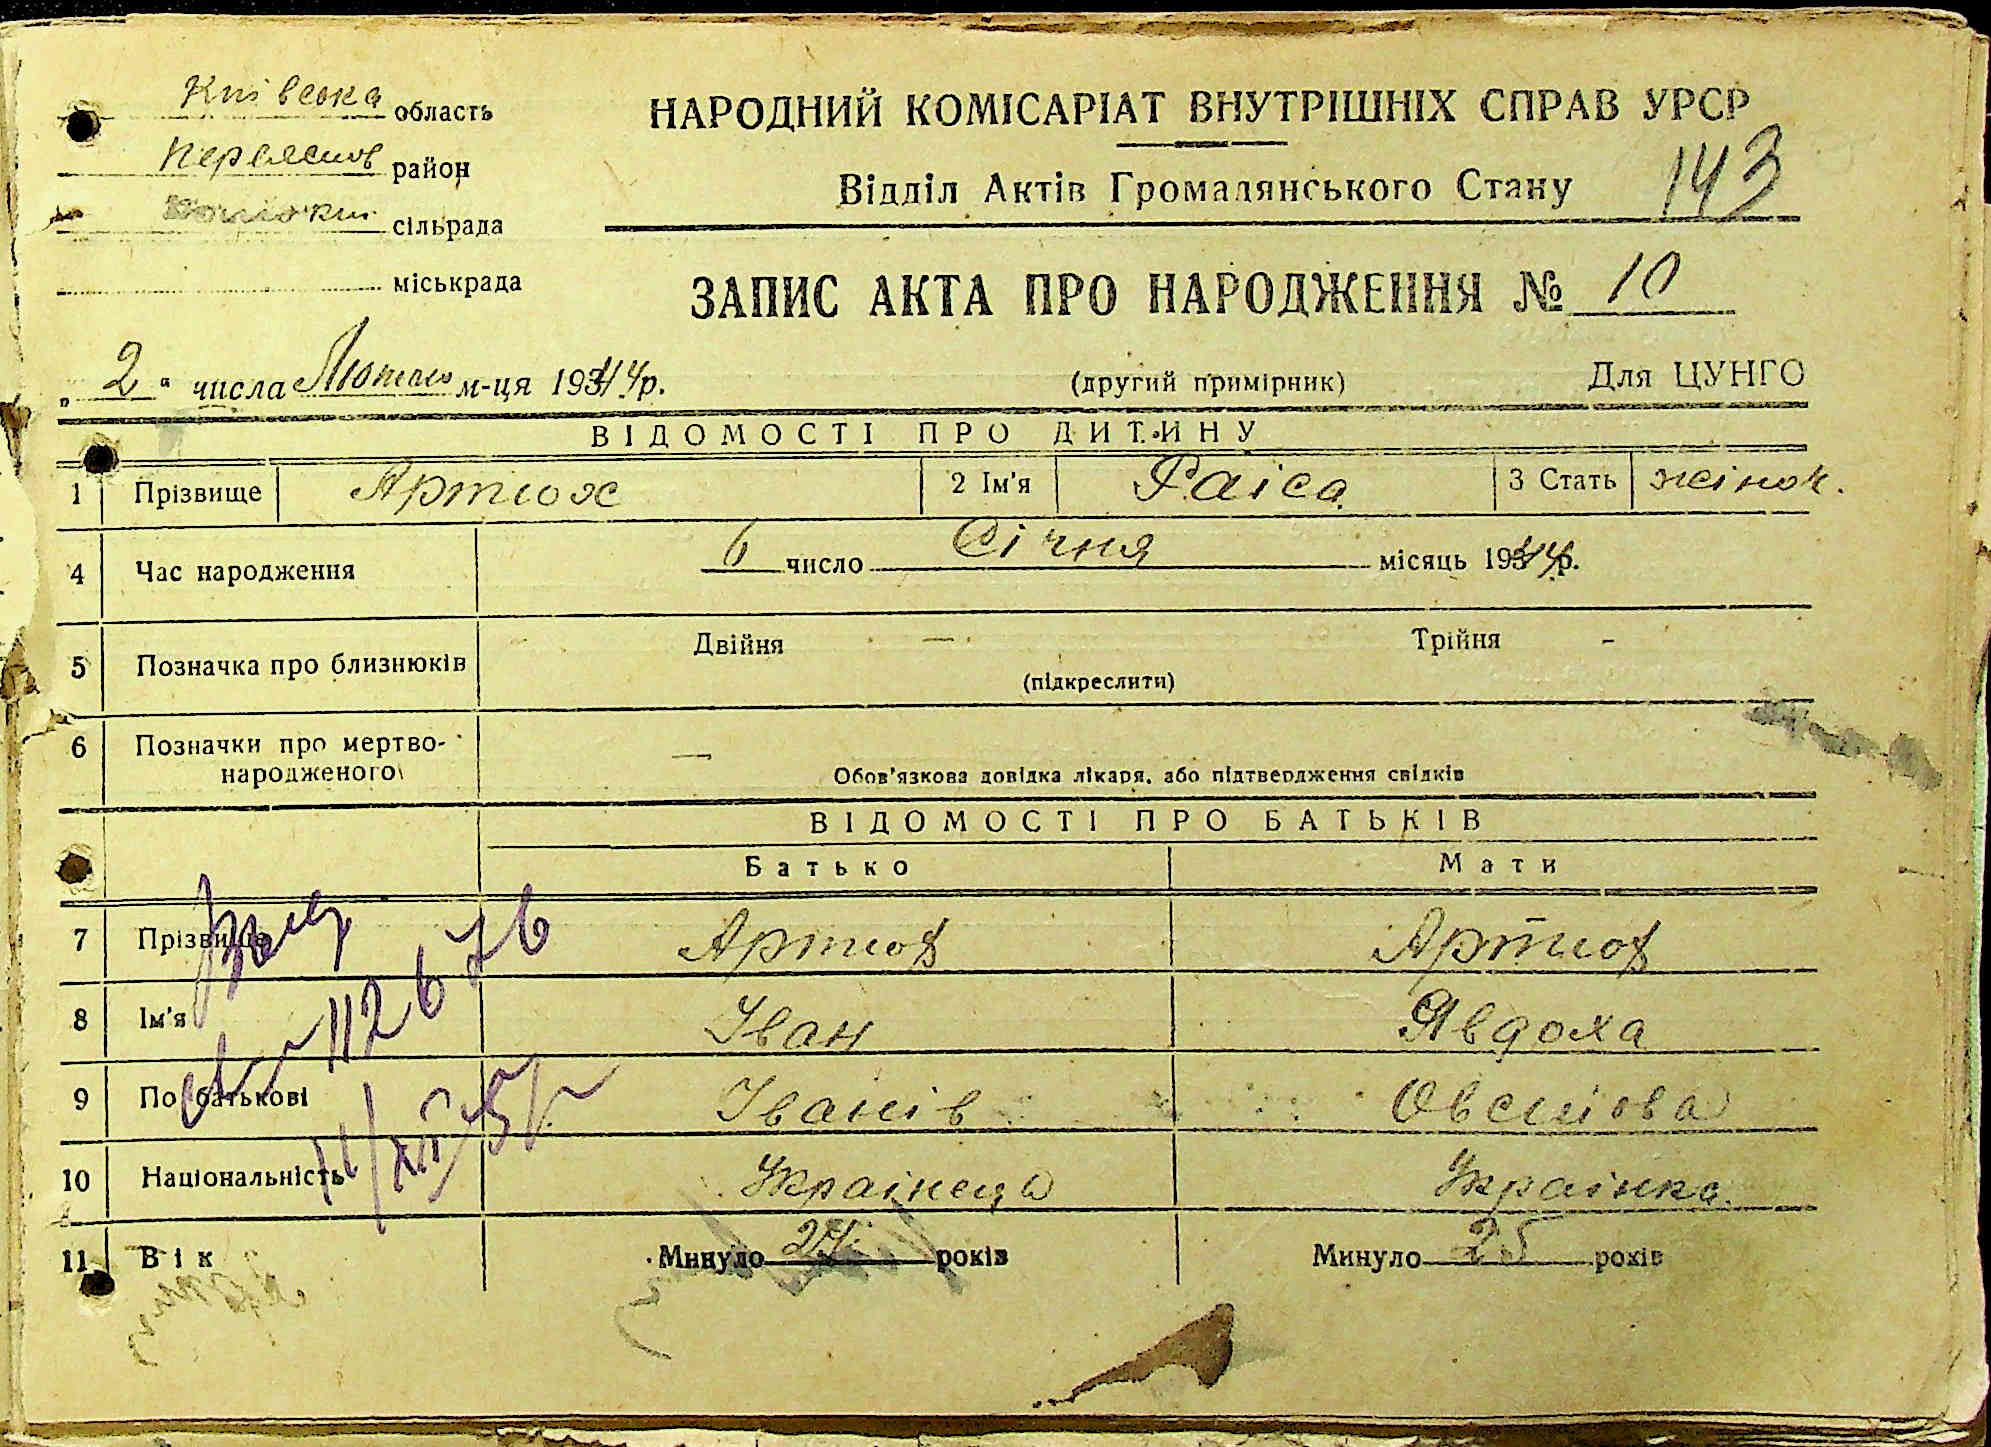 Київська область
Переяслов район
сільрада
міськрада
НАРОДНИЙ КОМІСАРІАТ ВНУТРІШНІХ СПРАВ УРСР
Відділ Актів Громадянського Стану 143
ЗАПИС АКТА ПРО НАРОДЖЕННЯ № 10
„2“ числа Лютого м-ця 1944р.
(другий примірник)
Для ЦУНГО
ВІДОМОСТІ ПРО ДИТИНУ
1 Прізвище Артюх 2 Ім'я Раіса 3 Стать жіноч.
4 Час народження 6 число Січня місяць 1944р.
5 Позначка про близнюків Двійня — Трійня -
(підкреслити)
6 Позначки про мертво-
народженого —
Обов'язкова довідка лікаря, або підтвердження свідків
ВІДОМОСТІ ПРО БАТЬКІВ
Батько Мати
7 Прізвище Артюх Артюх
8 Ім'я Іван Явдоха
9 По батькові Іванів Овсіїова
10 Національність Українець Українка
11 Вік Минуло 24 років Минуло 25 років
112676